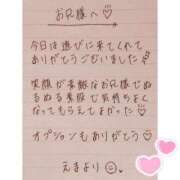 お兄様へ♡
今日は遊びに来てくれて
ありがとうございました!
笑顔が素敵なお兄様でぬ
るぬる素股で気持ちよく
なってもらえてよかった♡
オプションもありがとう♡
えまより☺